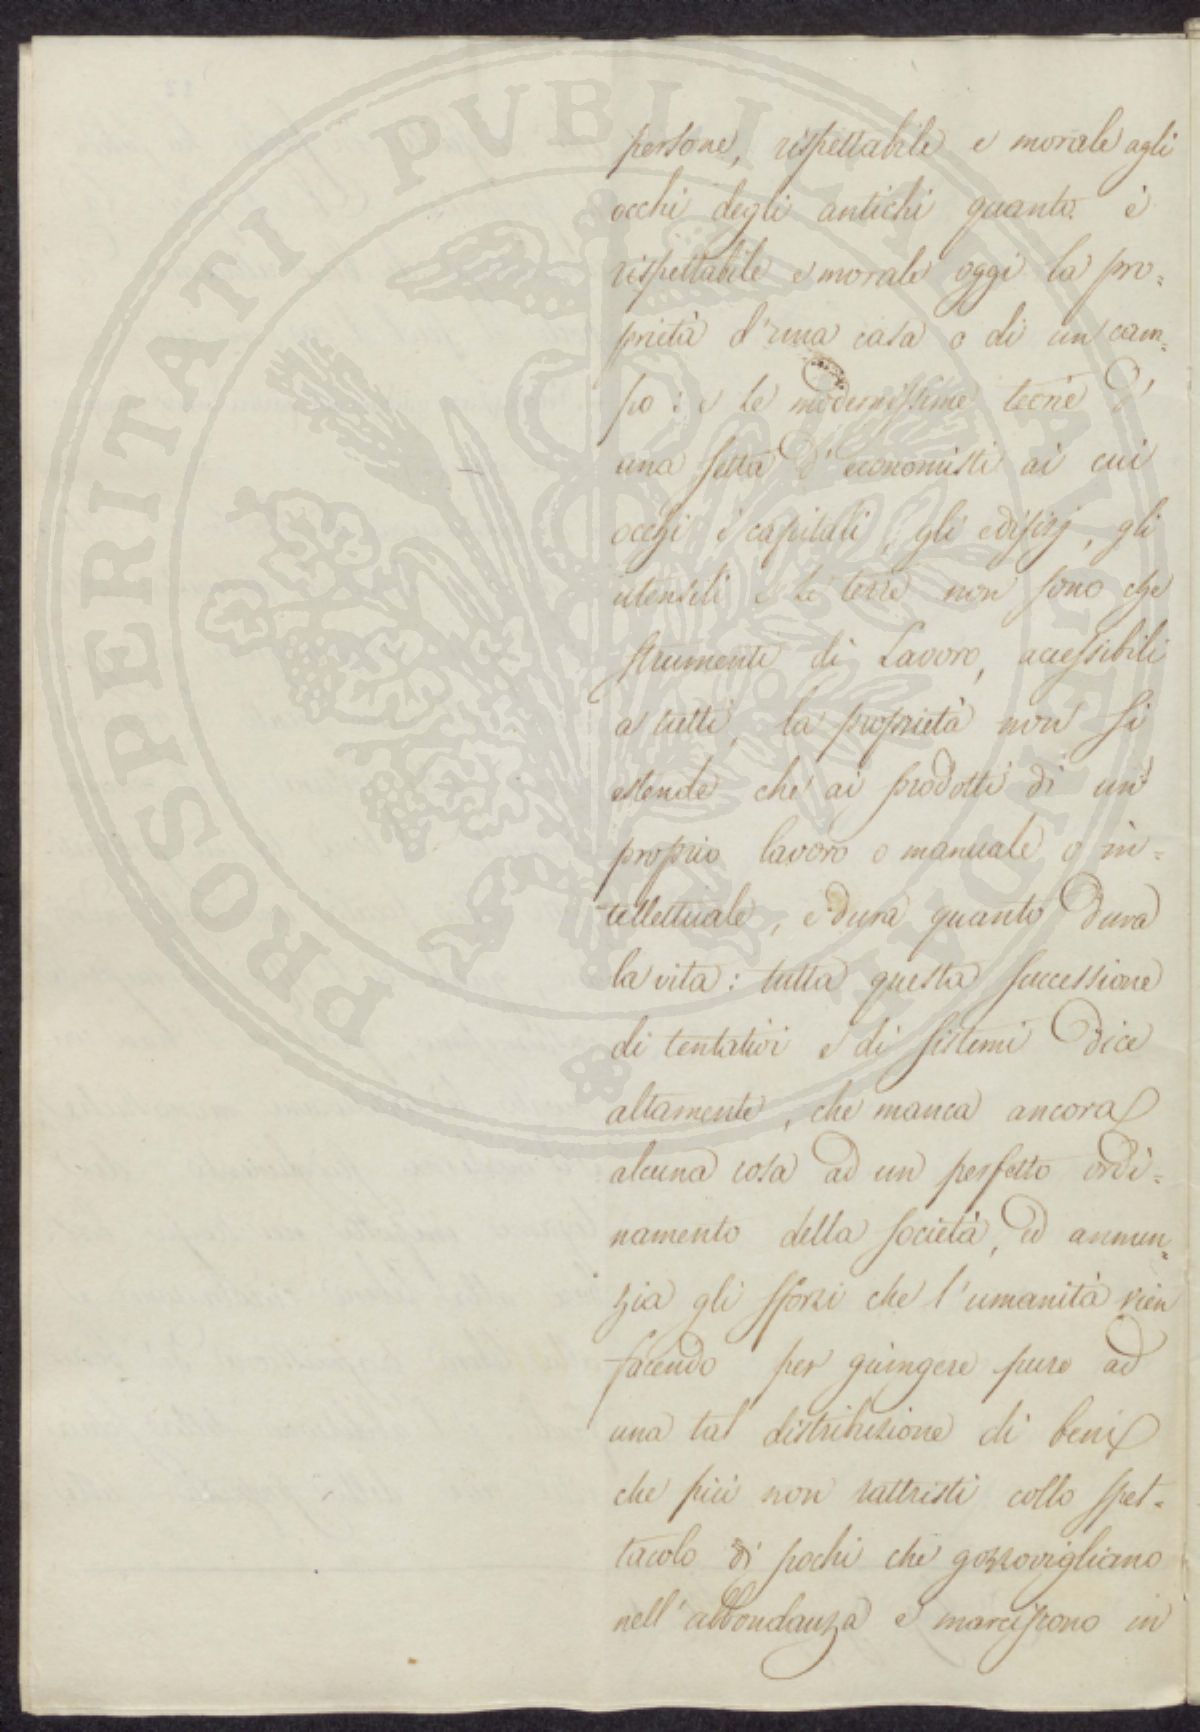 PROSPERITATI PVBLICAE AVGENDAE
persone, rispettabile e morale agli
occhi degli antichi quanto è
rispettabile e morale oggi la pro=
prietà d'una casa o di un cam=
po: e le modernissime teorie d'
una setta d'economisti ai cui
occhi i capitali, gli edifizj, gli
utensili e le terre non sono che
strumenti di Lavoro, accessibili
a tutti, la proprietà non si
estende che ai prodotti di un
proprio lavoro o manuale o in=
tellettuale, e dura quanto dura
la vita: tutta questa successione
di tentativi e di sistemi dice
altamente, che manca ancora
alcuna cosa ad un perfetto ordi=
namento della società, ed annun=
zia gli sforzi che l'umanità vien
facendo per giungere pure ad
una tal distribuzione di beni
che più non rattristi collo spet=
tacolo di pochi che gozzovigliano
nell'abbondanza e marciscono in